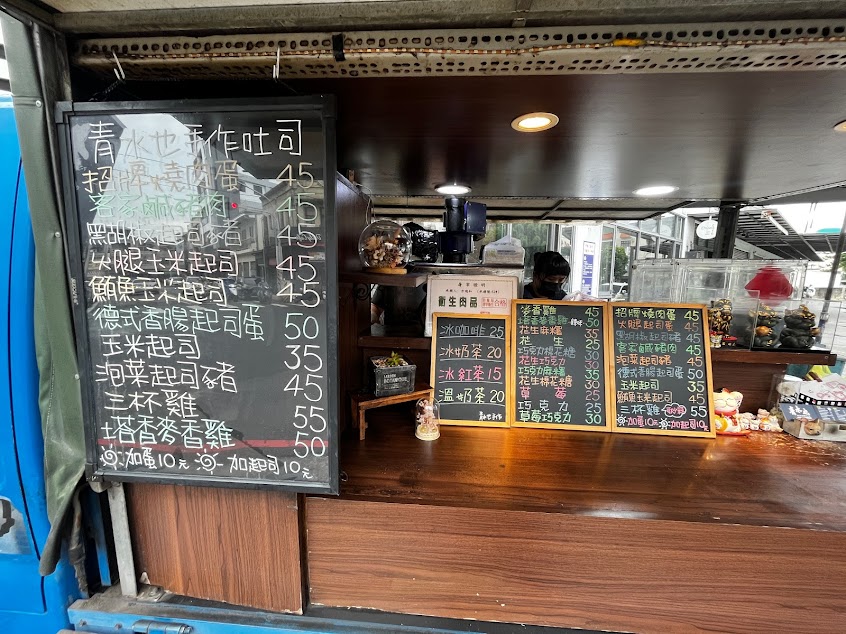 青水也手作吐司
招牌燒肉蛋 45
客家鹹豬肉 45
黑胡椒起司豬 45
火腿玉米起司 45
鮪魚玉米起司 45
德式香腸起司蛋 50
玉米起司 35
泡菜起司豬 45
三杯雞 55
塔香麥香雞 50
加蛋10元 加起司10元
衛生肉品
冰咖啡 25
冰奶茶 20
冰紅茶 15
溫奶茶 20
塔香麥香雞 50
花生麻糬 35
花生 25
巧克力棉花糖 30
花生巧克力 30
巧克力麻糬 35
花生棉花糖 30
草莓 25
巧克力 25
草莓巧克力 30
招牌燒肉蛋 45
火腿起司 45
黑胡椒起司豬 45
客家鹹豬肉 45
泡菜起司豬 45
德式香腸起司 50
玉米起司 35
鮪魚玉米起司 45
三杯雞 55
加蛋10元 加起司10元